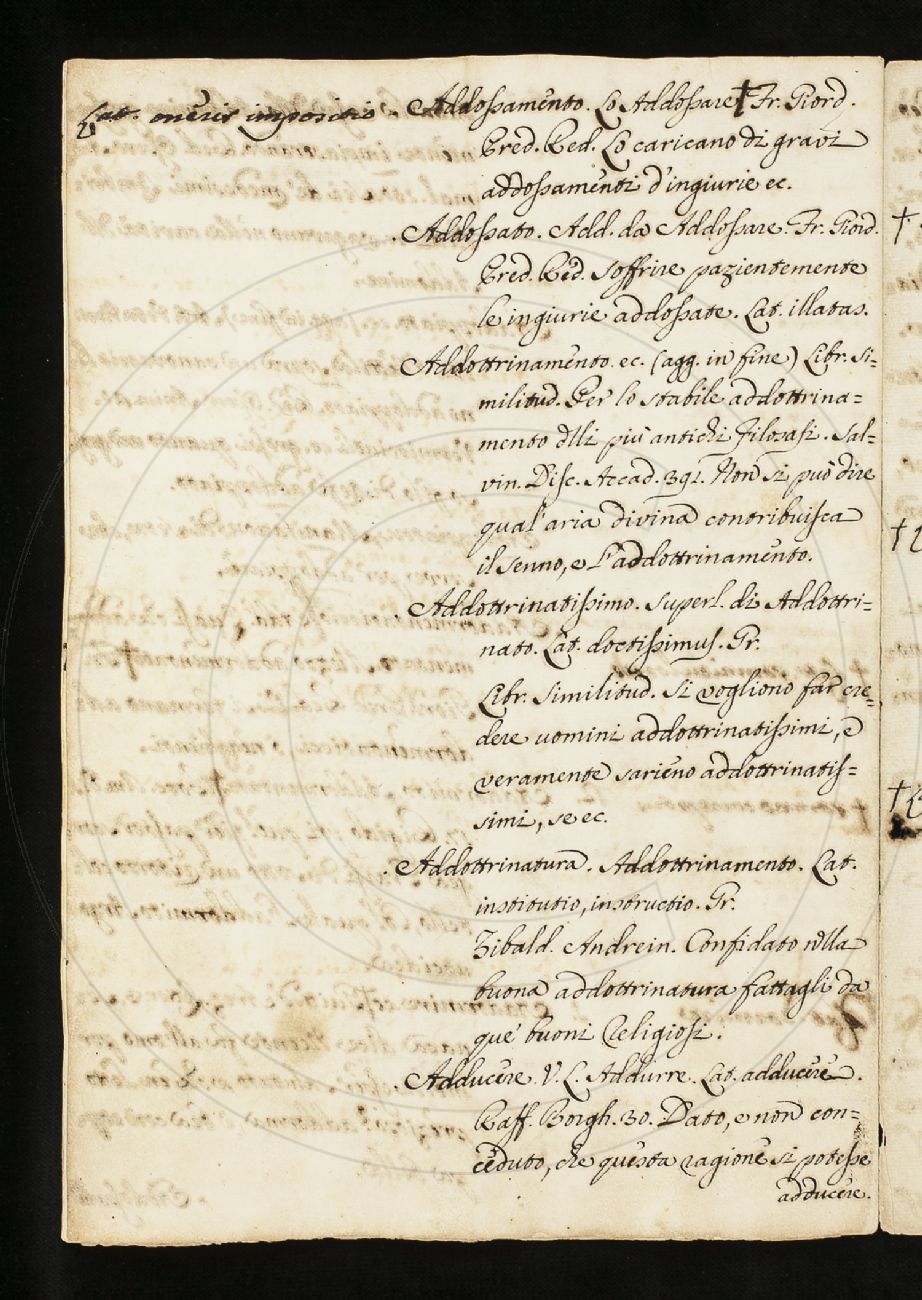 Lat. oneris impositio.
Addossamento. Lo Addossare † Fr. Giord.
Pred. Red. Lo caricano di gravi
addossamenti d'ingiurie ec.
Addossato. Add. da Addossare. Fr. Giord.
Pred. Red. Soffrire pazientemente
le ingiurie addossate. Lat. illatas.
Addottrinamento. ec. (agg. in fine) Libr. Si=
militud. Per lo stabile addottrina=
mento dlli più antichi Filosafi. Sal=
vin. Disc. Accad. 391. Non si può dire
qual' aria divina contribuisca
il senno, e l'addottrinamento.
Addottrinatissimo. Superl. di Addottri=
nato. Lat. doctissimus. Gr.
Libr. Similitud. Si vogliono far cre=
dere uomini addottrinatissimi, e
veramente sarieno addottrinatis=
simi, se ec.
Addottrinatura. Addottrinamento. Lat.
institutio, instructio. Gr.
Zibald. Andrein. Confidato nlla
buona addottrinatura fattagli da
que' buoni Religiosi.
Adducere. V. L. Addurre. Lat. adducere.
Raff. Borgh. 30. Dato, e non con=
ceduto, che questa ragione si potesse
adducere.
†
†
†